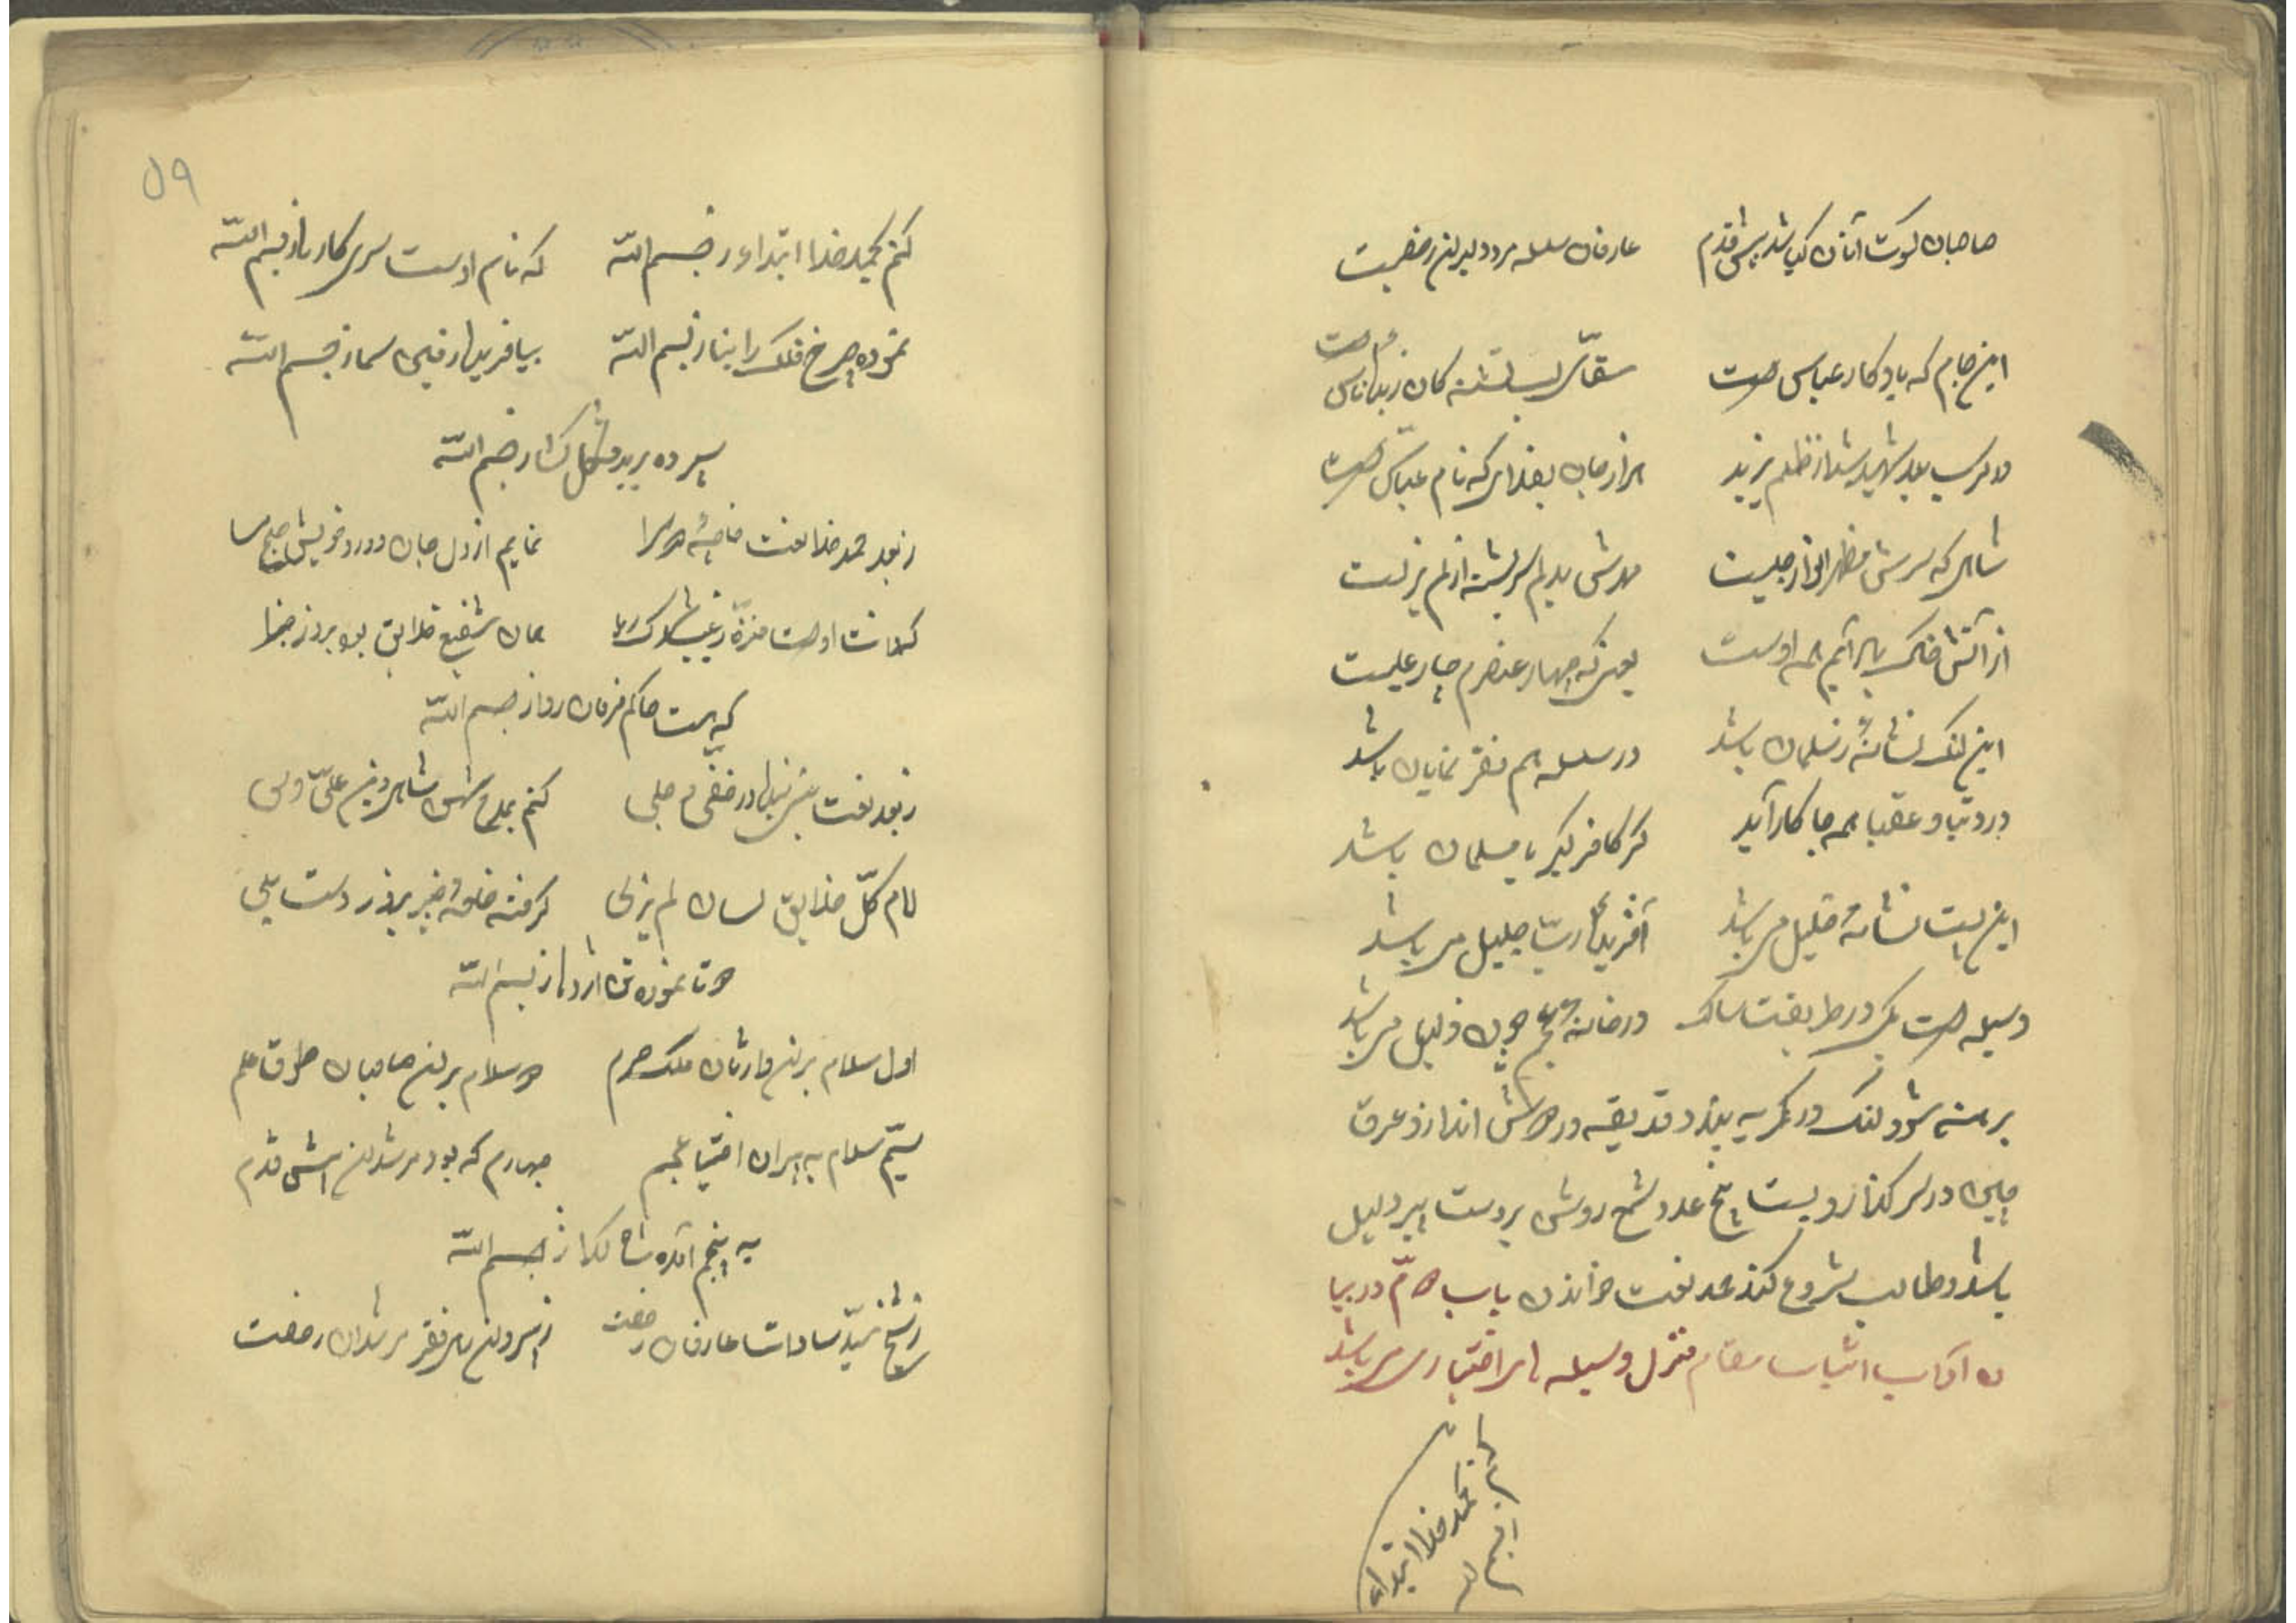 صاحبان کسوت آنان کباشد پیش قدم عارفان سلسله مرد دلیران رخصت
این جام که یادکار عباس منست سقای لب تشنه کان ز بهر ناس منست
در کرب بلا شهید شد از ظلم یزید هزار جان بفدای که نام عباس منست
شاهی که سرش مظهر انوار جلیست مهرش بدلم سرشته از لم یزلست
از آتش خاک باد آبم همه اوست یعنی که چهار عنصرم چار علیست
این لنک نشانهٔ ز سلمان باشد در سلسله هم فقر نمایان باشد
در دنیا و عقبا همه جا کار آید کر کافر کبر یا مسلمان باشد
این است نشانه خلیل می باشد آفریدکار ربّ جلیل می باشد
وسیله است یکی در طریقت سالک در خانه عجم چون دلیل می باشد
برهنه شود لنک در کمر به بندد قدیفه در دوش اندازد عرق
چین در سر کذارد بیست پنج عدد شمع روشن بر دست پیر دلیل
باشد و طالب شروع کند بحمد نعت خواندن باب دوّم در بیا
ن آداب اثبات مقام منزل وسیله های اختیاری می باشد
کنم بحمد خدا ابتداء
ز بسم الله
۵۹
کنم بحمد خدا ابتداء ز بسم الله که نام اوست سر کار ها ز بسم الله
نموده چرخ فلک را بنا ز بسم الله بیافرید زمین سما ز بسم الله
سپرده برید مشکل کشا ز بسم الله
ز بعد حمد خدا نعت خاجهٔ دو سرا نمایم از دل جان ورد خویش صبح مسا
که ذات اوست منزه ز غیب شک ریا همان شفیع خلایق بود بروز جزا
که هست حاکم فرمان روا ز بسم الله
ز بعد نعت نبی در خفی و جلی کنم بمدح شهنشاه دین علیّ ولی
امام کلّ خلایق لسان لم یزلی کرفته حلقهٔ خیبر بزور دست یلی
دو تا نموده تن اژدها ز بسم الله
اول سلام بر این وارثان ملک حرم دو سلام بر این صاحبان طوق علم
سیّم سلام به پیران اختیا عجم چهارم که بود مرشدان پیش قدم
به پنجم آمده شاه کدا ز بسم الله
ز شیخ سیّد سادات عارفان رخصت ز سروران فقر مرشدان رخصت